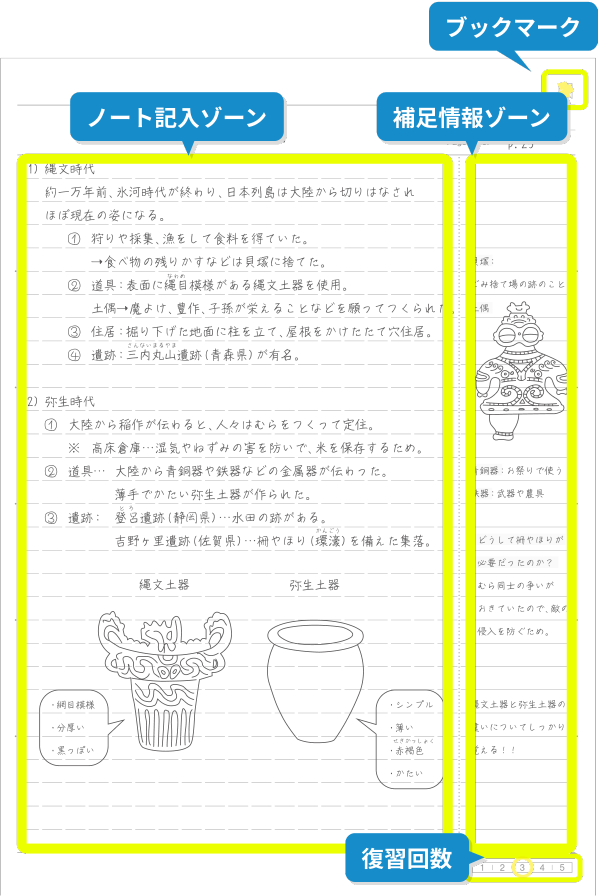 ブックマーク
ノート記入ゾーン
補足情報ゾーン
p. 25
1) 縄文時代
約一万年前、氷河時代が終わり、日本列島は大陸から切りはなされ
ほぼ現在の姿になる。
① 狩りや採集、漁をして食料を得ていた。
→食べ物の残りかすなどは貝塚に捨てた。
② 道具:表面に縄目模様がある縄文土器を使用。
なわめ
土偶→魔よけ、豊作、子孫が栄えることなどを願ってつくられた。
③ 住居:掘り下げた地面に柱を立て、屋根をかけたたて穴住居。
さんないまるやま
④ 遺跡:三内丸山遺跡(青森県)が有名。
2) 弥生時代
① 大陸から稲作が伝わると、人々はむらをつくって定住。
※ 高床倉庫…湿気やねずみの害を防いで、米を保存するため。
② 道具… 大陸から青銅器や鉄器などの金属器が伝わった。
薄手でかたい弥生土器が作られた。
とろ
③ 遺跡: 登呂遺跡(静岡県)…水田の跡がある。
かんごう
吉野ヶ里遺跡(佐賀県)…柵やほり(環濠)を備えた集落。
縄文土器
弥生土器
・網目模様
・分厚い
・黒っぽい
・シンプル
・薄い
せきかっしょく
・赤褐色
・かたい
貝塚:
ごみ捨て場の跡のこと
土偶
青銅器:お祭りで使う
鉄器:武器や農具
どうして柵やほりが
必要だったのか?
むら同士の争いが
おきていたので、敵の
侵入を防ぐため。
縄文土器と弥生土器の
違いについてしっかり
覚える!!
復習回数
1 2 3 4 5